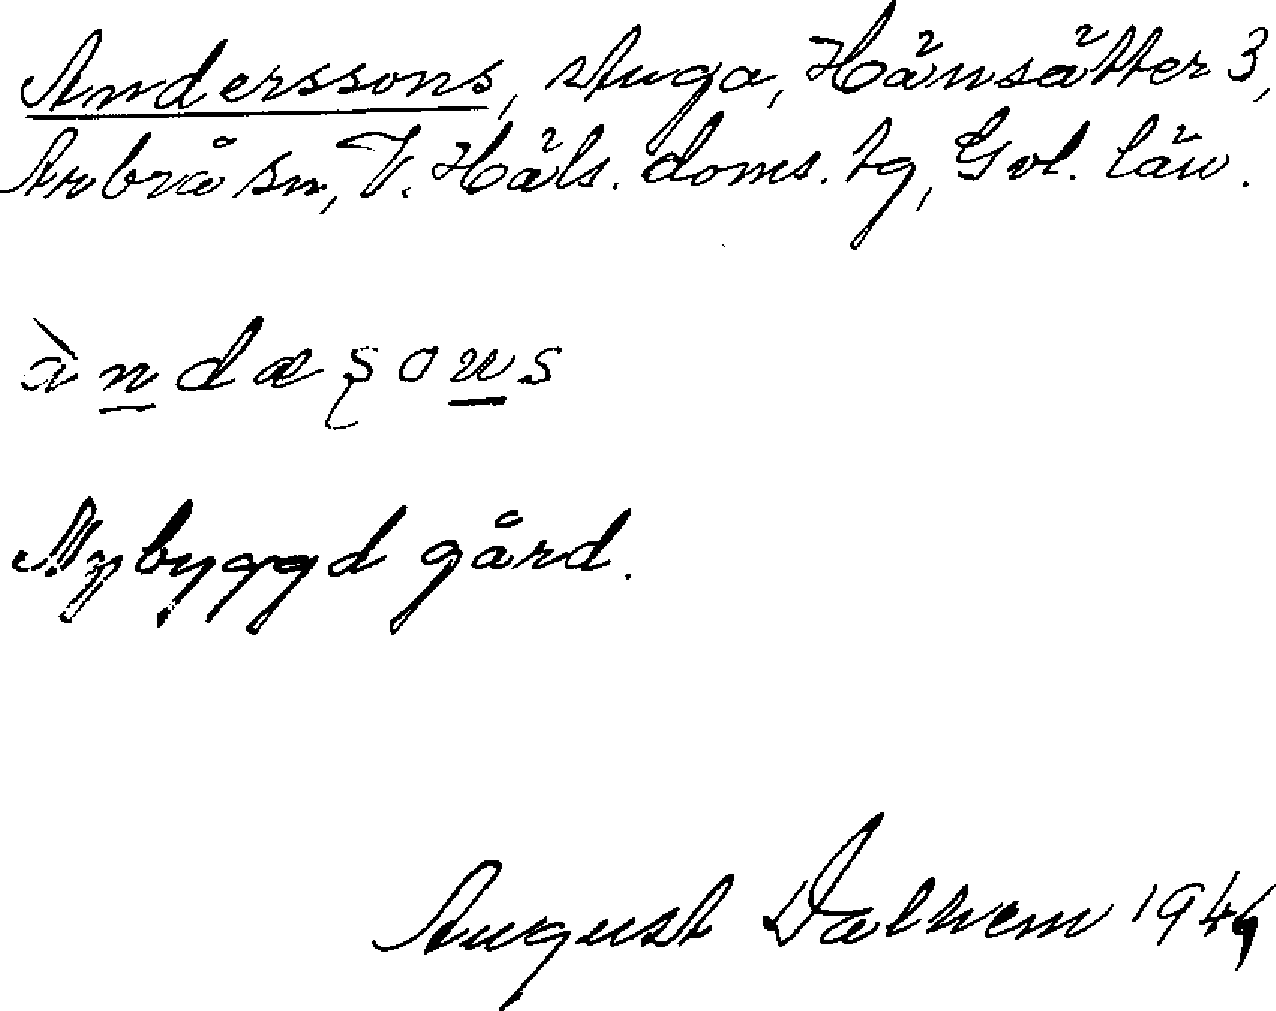 Anderssons, stuga, Hänsätter 3,
Arbrå sn, V. Häls. doms. tg, Gvl. län.
àndæʂons
Nybyggd gård.
August Dalhem 194